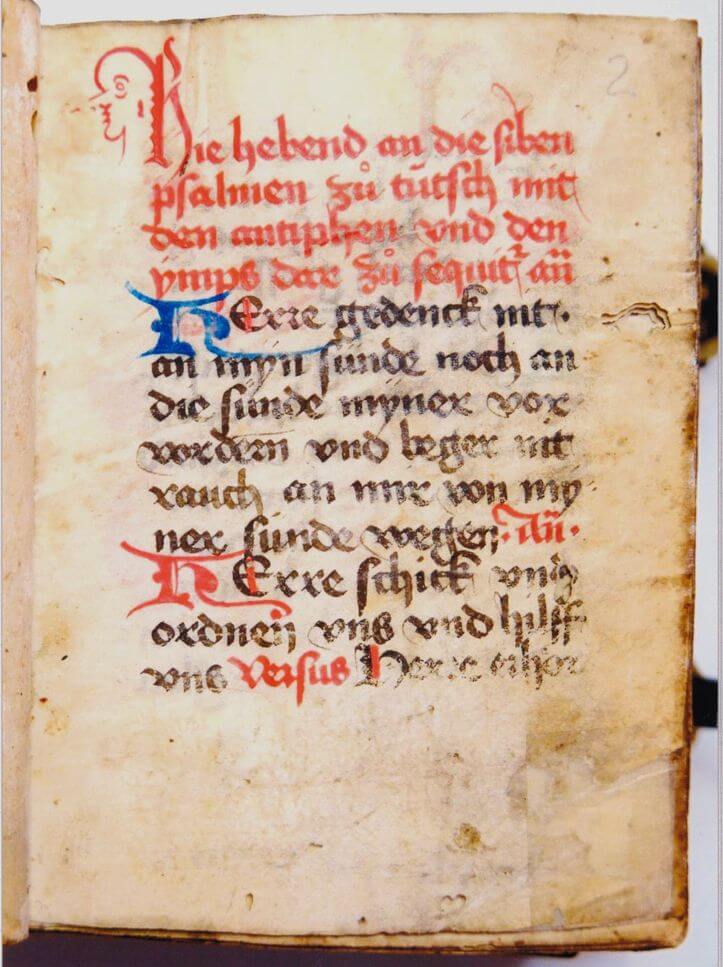 2
Hie hebend an die siben
psalmen zů tütsch mit
den antiphen vnd den
ymps dar zů sequitr añ
HErre gedenck nit.
an myn sünde noch an
die sünde myner vor
vordern vnd beger nit
rauch an mir von my
ner sünde wegen. añ.
HErre schick vnd
ordnen vns vnd hilff
vns versus Herr erhor